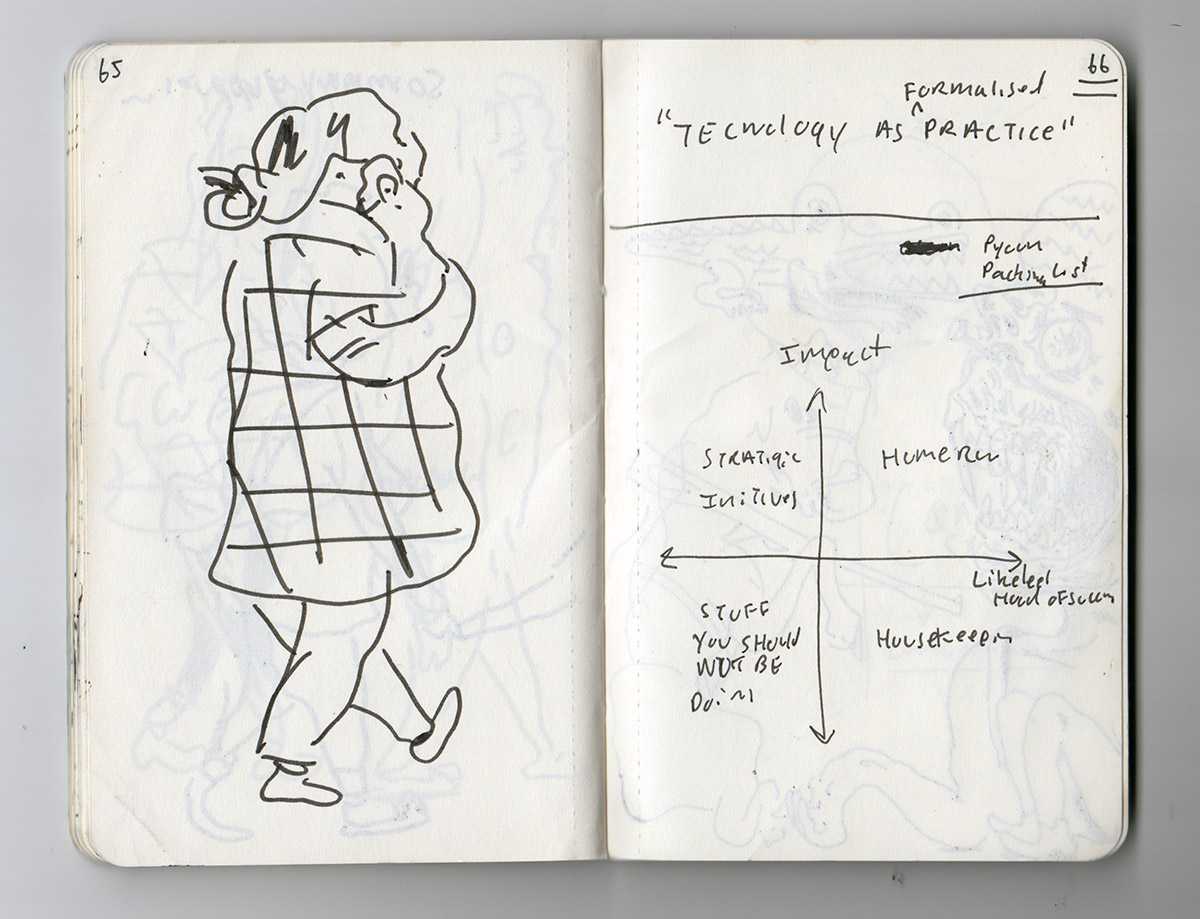 65
66
Formalised
"TECNOLOGY AS ^ PRACTICE"
Pycon
Packing List
Impact
STRATigic
Initives
Home Run
Likeleel
Hood of success
STUFF
YOU SHOULD
NOT BE
Doing
Housekeeping